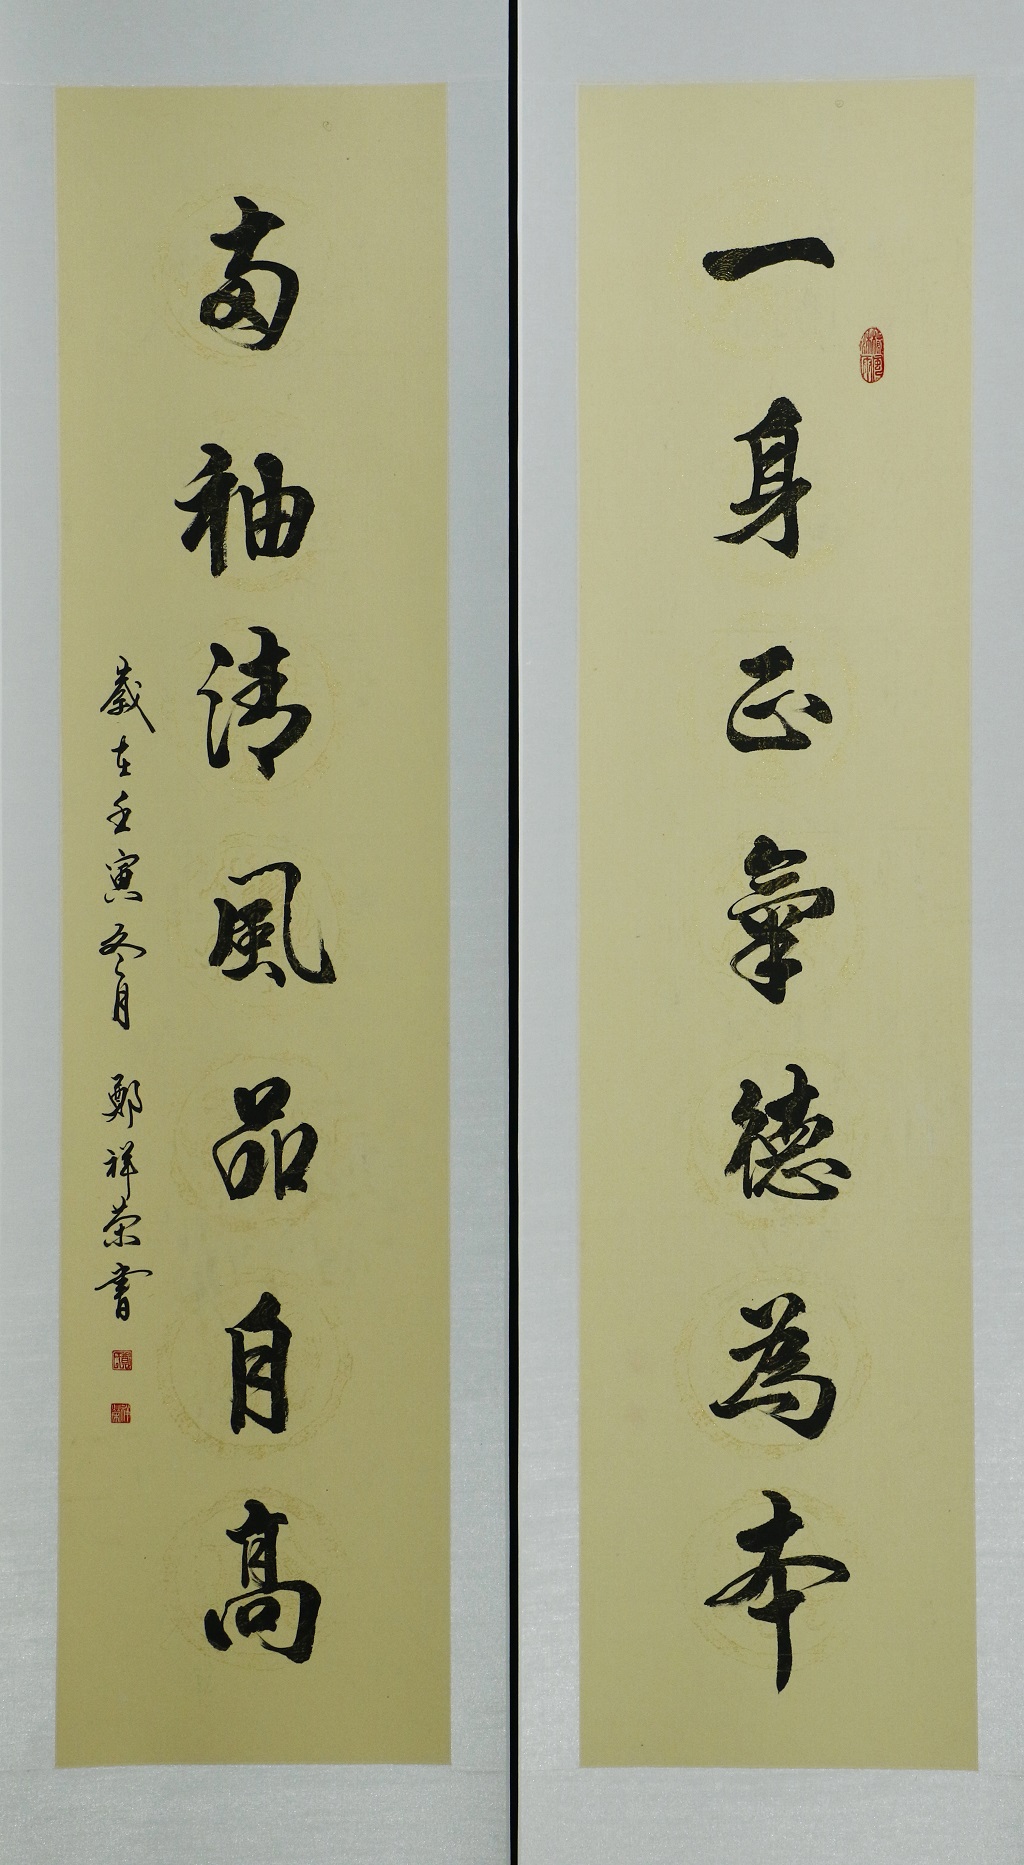 一身正氣德為本
兩袖清風品自高
歲在壬寅冬月 鄭祥榮書